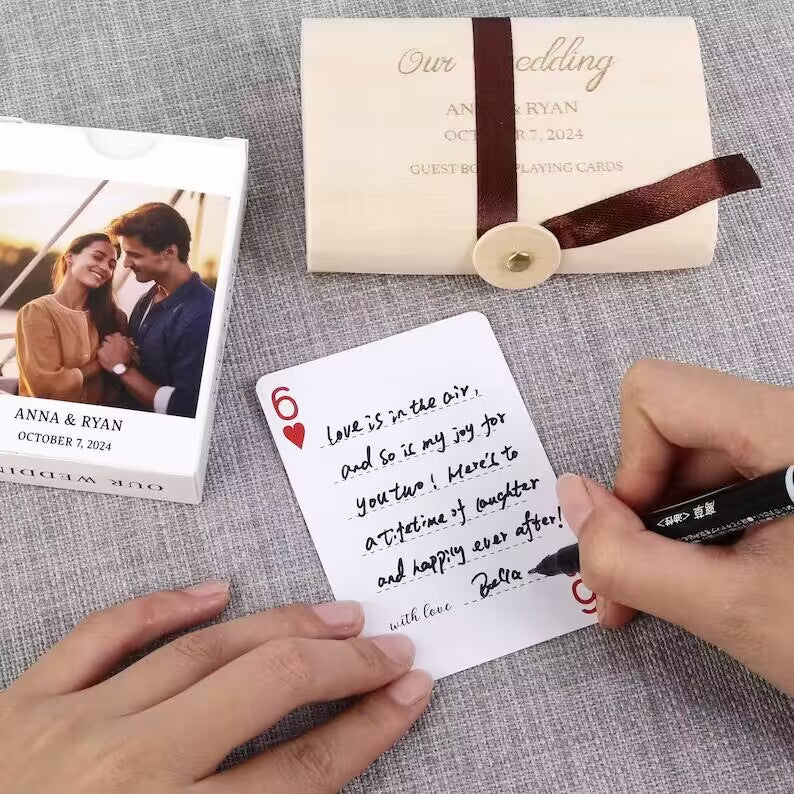 Our Wedding
ANNA & RYAN
OCTOBER 7, 2024
GUEST BOOK PLAYING CARDS
ANNA & RYAN
OCTOBER 7, 2024
OUR WEDDING
6
Love is in the air,
and so is my joy for
you two! Here's to
a lifetime of laughter
and happily ever after!
with love Bella
6